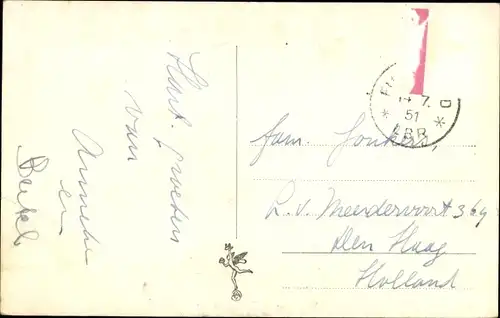 Hart. groeten
van
Anneke
en
14.7.
51
Fam. Jonkers,
L. v. Meerdervoort 369
Den Haag
Holland